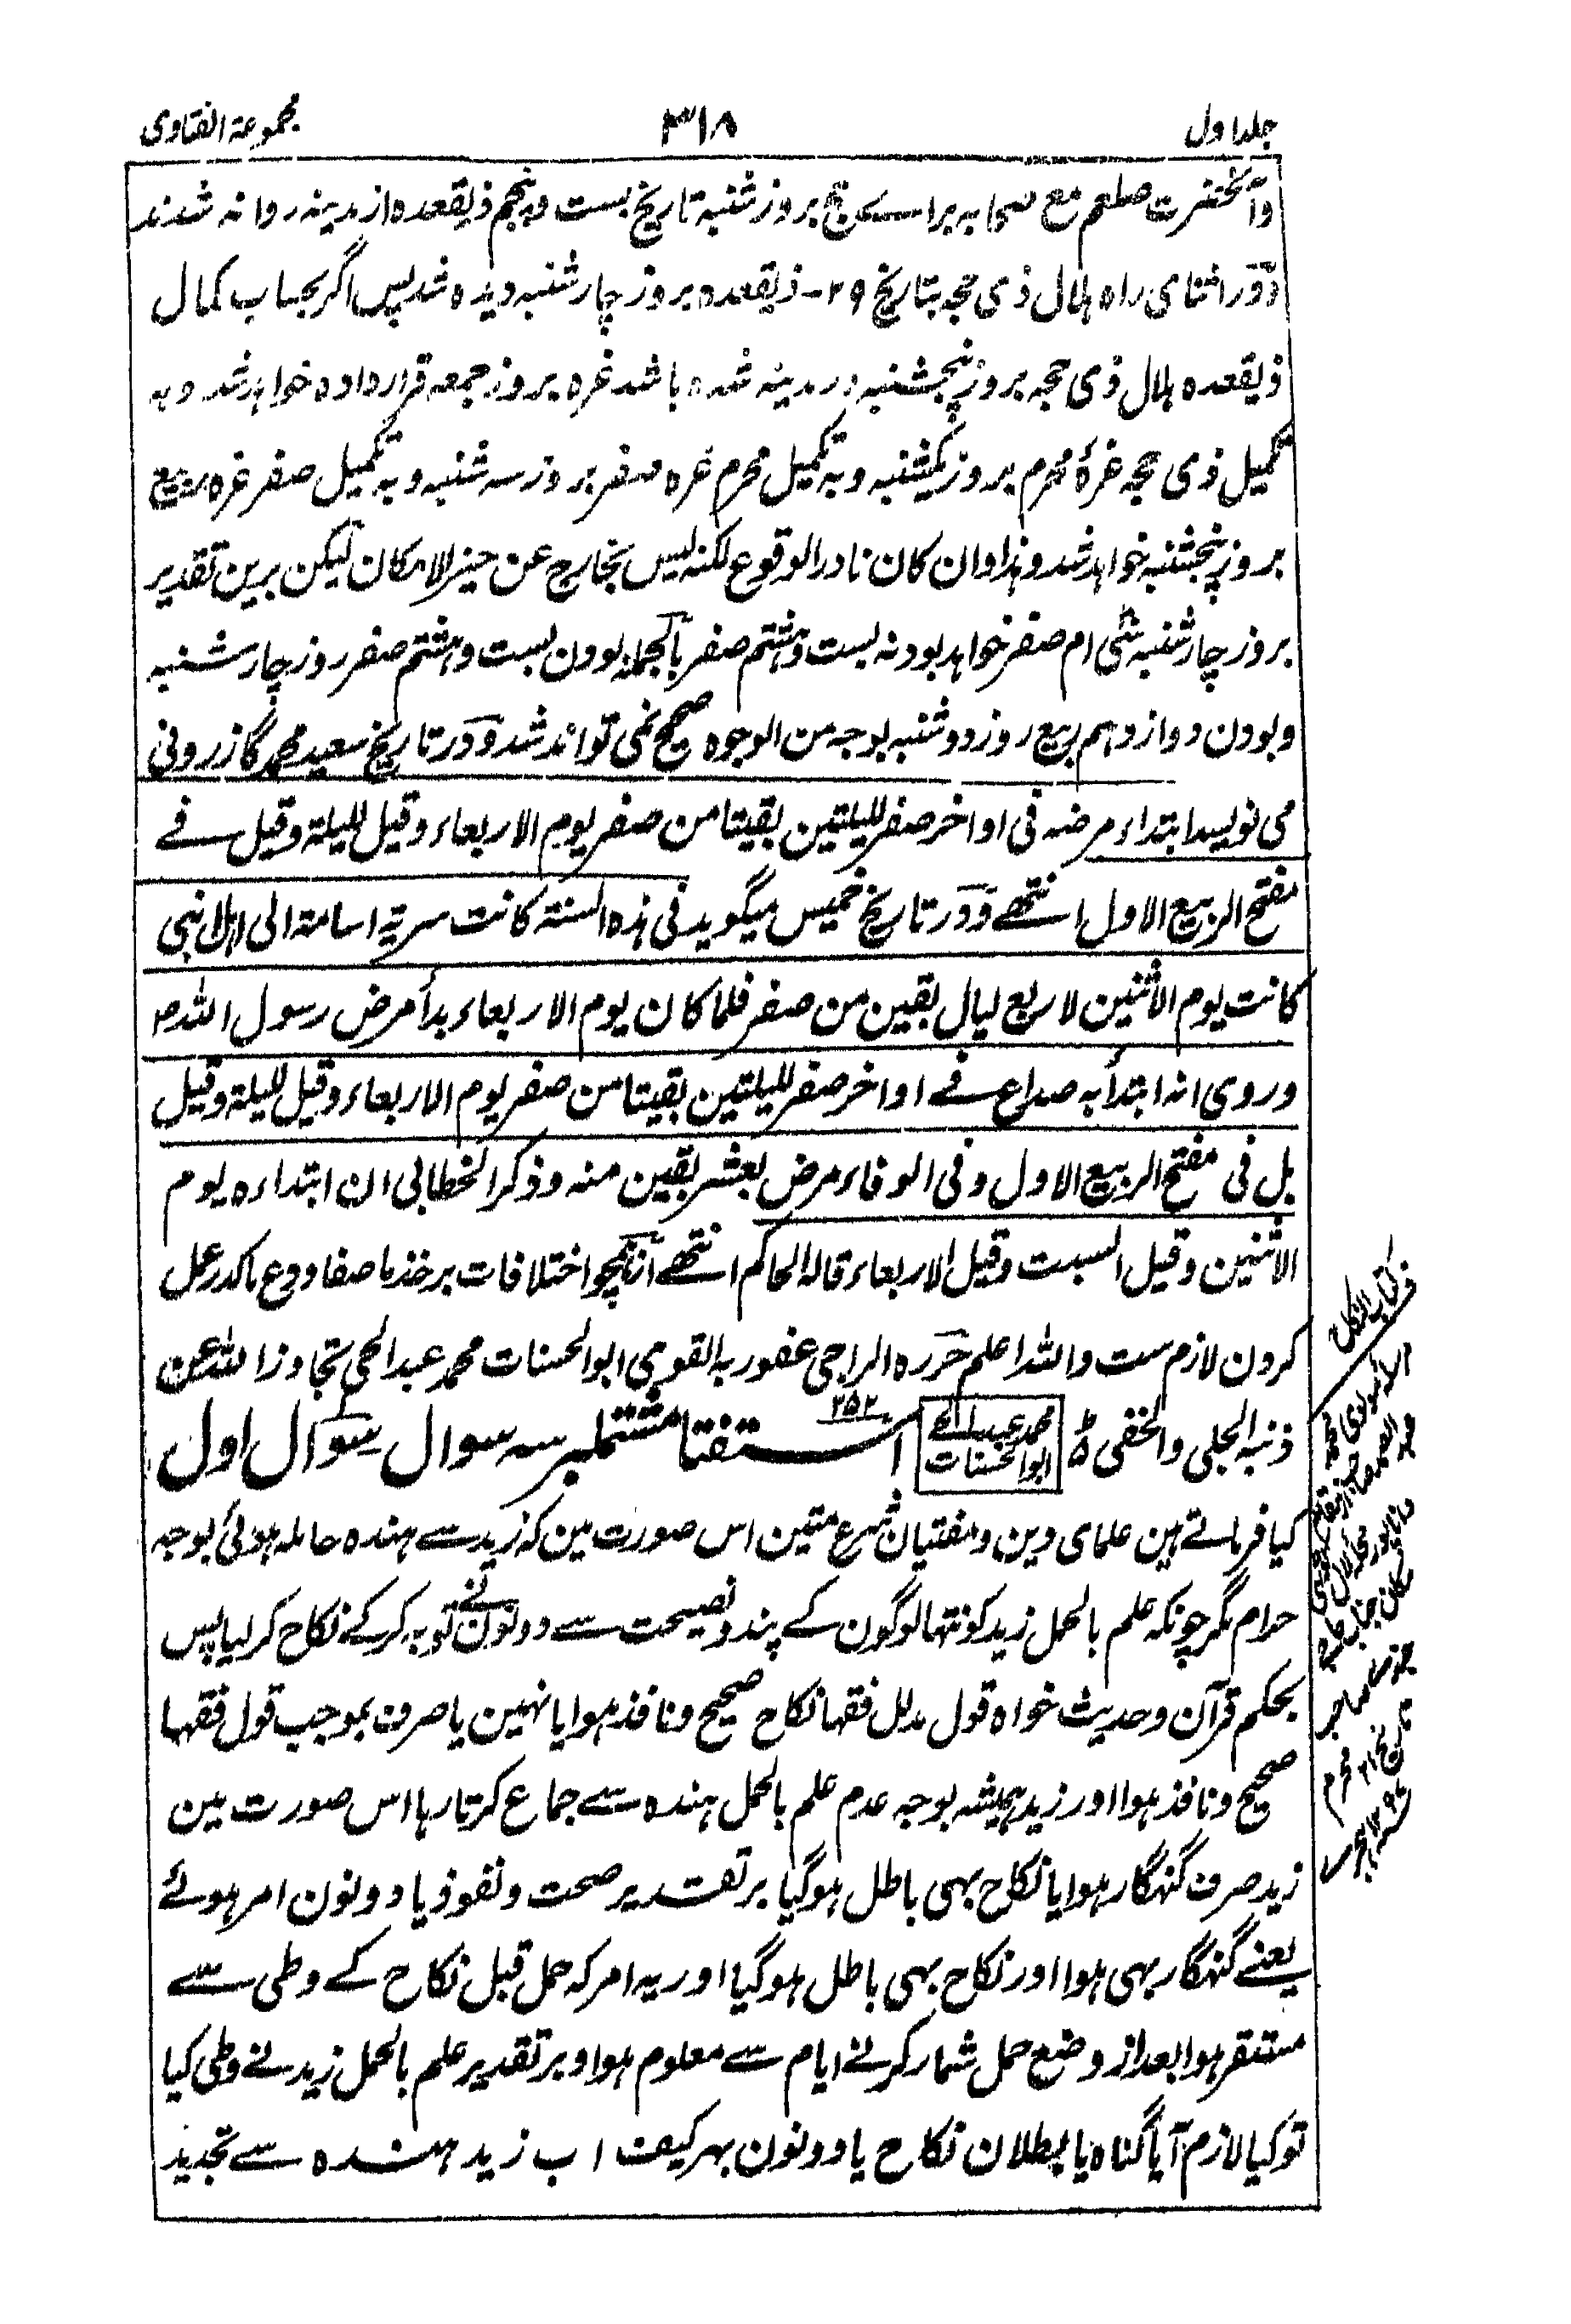 جلد اول
۳۱۸
مجموعۃ الفتاوی
وآنحضرت صلعم مع صحابہ براے حج بروز شنبہ تاریخ بست وپنجم ذیقعدہ از مدینہ روانہ شدند
ودر اثنای راہ ہلال ذی حجہ بتاریخ ۲۹- ذیقعدہ بروز چارشنبہ دیدہ شد پس اگر بحساب کمال
ذیقعدہ ہلال ذی حجہ بروز پنجشنبہ در مدینہ شدہ باشد غرہ بروز جمعہ قرار دادہ خواہد شد وبہ
تکمیل ذی حجہ غرۂ محرم بروز یکشنبہ وبہ تکمیل محرم غرہ صفر بروز سہ شنبہ وبہ تکمیل صفر غرہ ربیع
بروز پنجشنبہ خواہد شد وہذا وان کان نادر الوقوع لکنہ لیس بخارج عن حیز الامکان لیکن برین تقدیر
بروز چارشنبہ سی ام صفر خواہد بود نہ بست وہشتم صفر بالجملہ بودن بست وہشتم صفر روز چارشنبہ
وبودن دوازدہم ربیع روز دوشنبہ بوجہ من الوجوہ صحیح نمی تواند شد ودر تاریخ سعید محمد گازرونی
می نویسد ابتداء مرضہ فی اواخر صفر للیلتین بقیتا من صفر یوم الاربعاء وقیل للیلۃ وقیل فے
مفتح الربیع الاول انتھے ودر تاریخ خمیس میگوید فی ہذہ السنۃ کانت سریۃ اسامۃ الی اہل ابنی
کانت یوم الاثنین لاربع لیال بقین من صفر فلما کان یوم الاربعاء بدأ مرض رسول اللہ ص
وروی انہ ابتدأ بہ صداع فے اواخر صفر للیلتین بقیتا من صفر یوم الاربعاء وقیل للیلۃ وقیل
بل فی مفتح الربیع الاول وفی الوفاء مرض بعشر بقین منہ وذکر الخطابی ان ابتداءہ یوم
الاثنین وقیل السبت وقیل الاربعاء قالہ الحاکم انتھے آنچو اختلافات بر خذ ما صفا ودع ما کدر عمل
کردن لازم ست واللہ اعلم حررہ الراجی عفو ربہ القوی ابو الحسنات محمد عبدالحی تجاوز اللہ عن
ذنبہ الجلی والخفی
محمد عبدالحی
ابوالحسنات
۲۵۲
استفتا مشتملبر سہ سوال سوال اول
کیا فرماتے ہین علمای دین ومفتیان شرع متین اس صورت مین کہ زید سے ہندہ حاملہ ہوئی بوجہ
حرام مگر چونکہ علم بالحمل زید کو نتہا لوگون کے پند ونصیحت سے دونون نے توبہ کر کے نکاح کر لیا پس
بحکم قرآن وحدیث خواہ قول مدلل فقہا نکاح صحیح ونافذ ہوا یا نہین یا صرف بموجب قول فقہا
صحیح ونافذ ہوا اور زید ہمیشہ بوجہ عدم علم بالحمل ہندہ سے جماع کرتا رہا اس صورت مین
زید صرف گنہگار ہوا یا نکاح بہی باطل ہو گیا بر تقدیر صحت ونفوذ یا دونون امر ہوئے
یعنے گنہگار بہی ہوا اور نکاح بہی باطل ہو گیا اور یہ امر کہ حمل قبل نکاح کے وطی سے
مستقر ہوا بعد از وضع حمل شمار کرنے ایام سے معلوم ہوا وبر تقدیر علم بالحمل زید نے وطی کیا
تو کیا لازم آیا گناہ یا بطلان نکاح یا دونون بہر کیف اب زید ہندہ سے تجدید
کتاب النکاح
تاریخ ۲۱ محرم